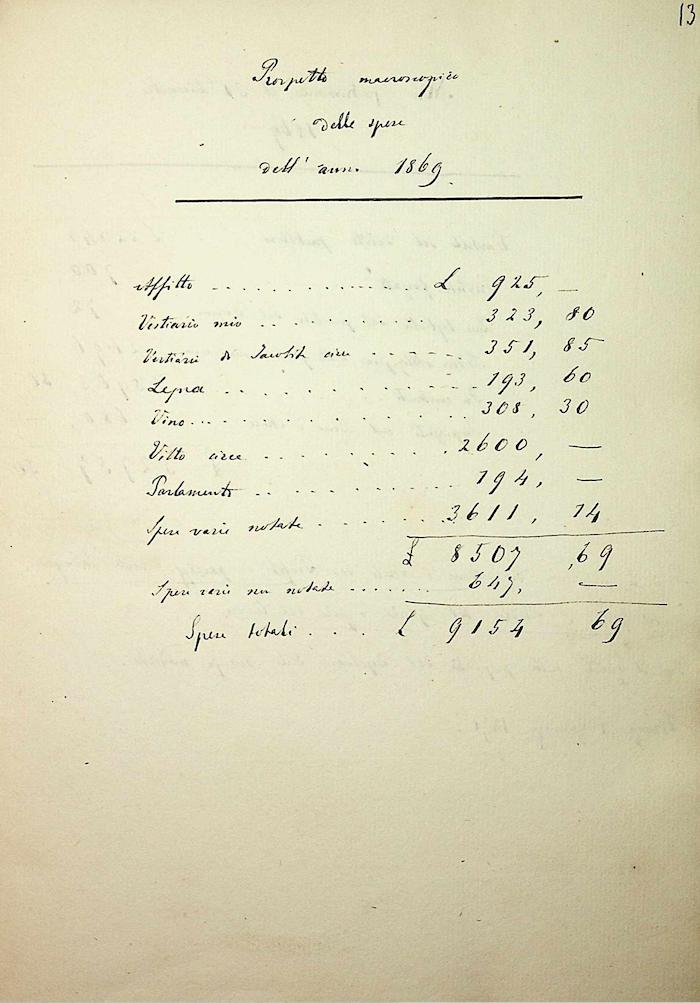 13
Prospetto macroscopico
delle spese
dell' anno 1869.
Affitto ............. £ 925, —
Vestiario mio .......... 323, 80
Vestiario di circa ...... 351, 85
Legna ............. 193, 60
Vino ............. 308, 30
Vitto circa .......... 2600, —
Parlamento .......... 194, —
Spese varie notate ....... 3611, 14
£ 8507 ,69
Spese varie non notate ...... 647, —
Spese totali .... £ 9154 69